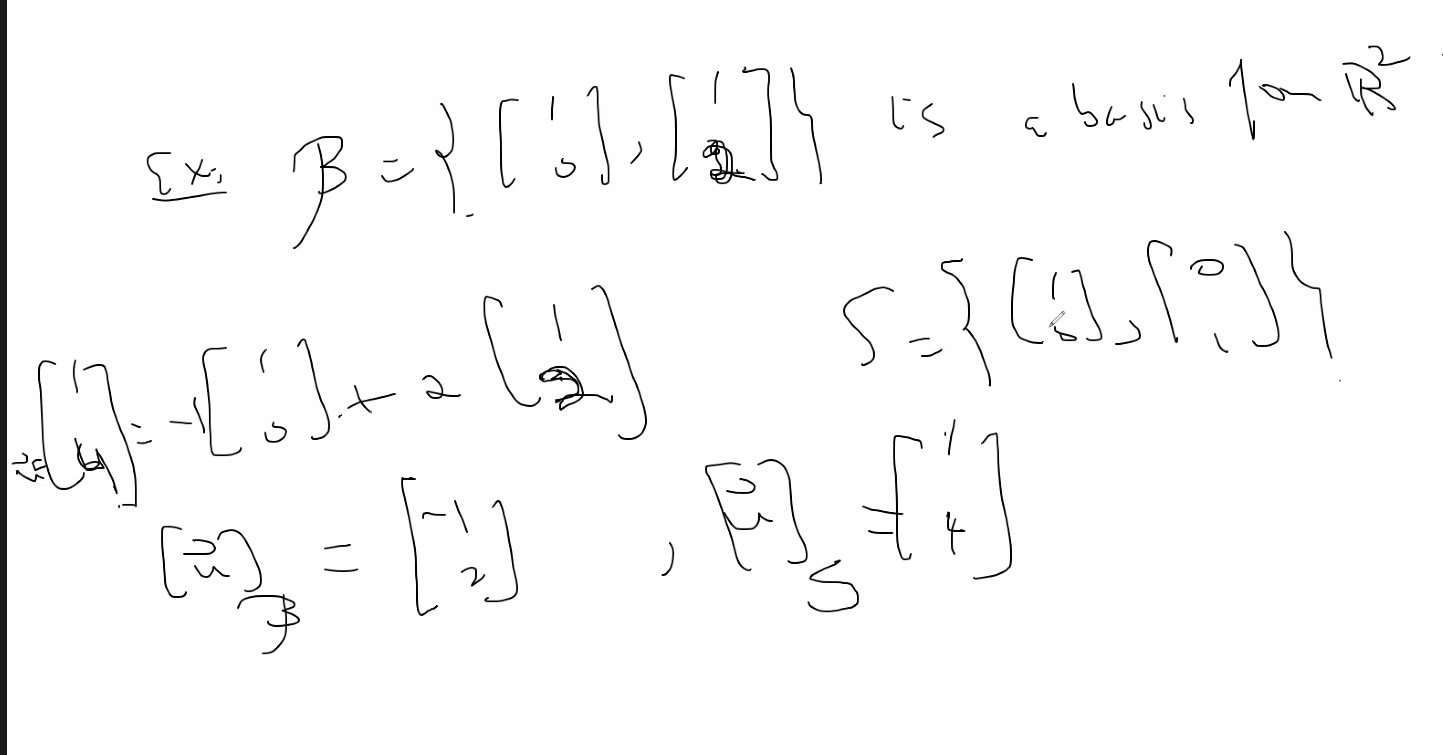 Ex. β = { [1 0], [1 2] } is a basis for ℝ²
S = { [1 0], [0 1] }
u⃗ = [1 4] = -1 [1 0] + 2 [1 2]
[u⃗]β = [-1 2] , [u⃗]S = [1 4]